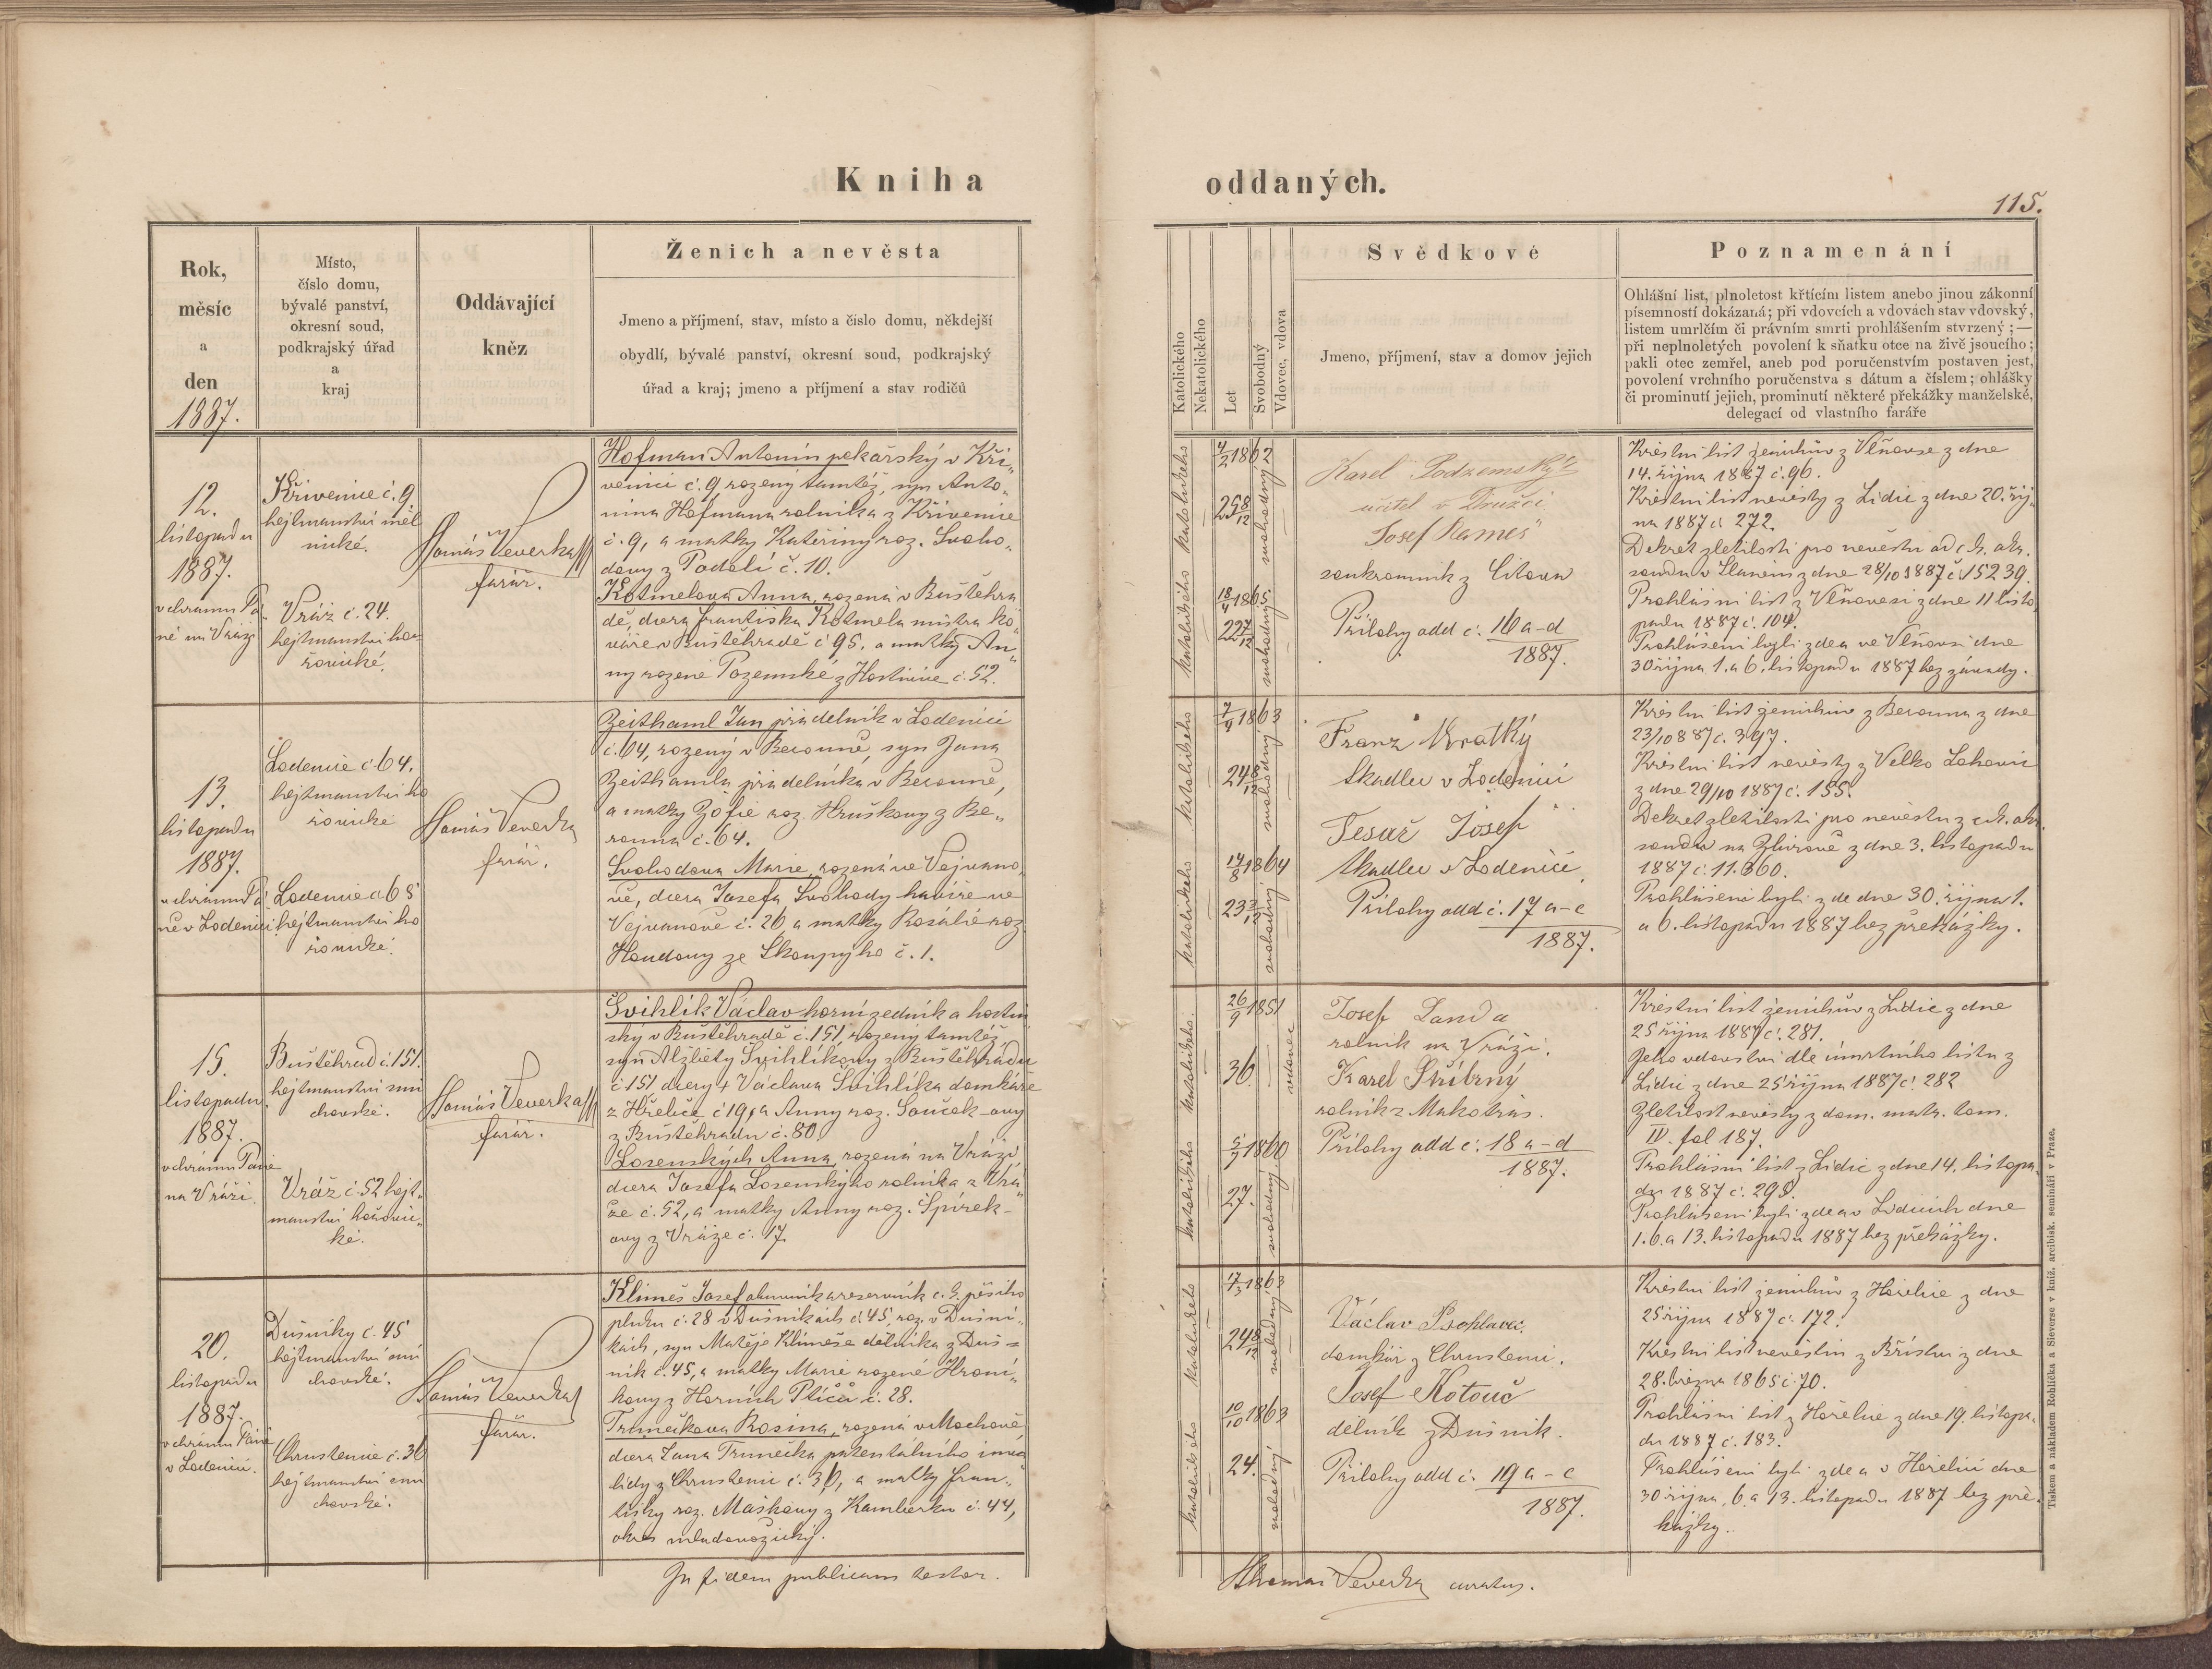 Kniha
oddaných.
115.
Rok,
měsíc
a
den
1887.
Místo,
číslo domu,
bývalé panství,
okresní soud,
podkrajský úřad
a
kraj
Oddávající
kněz
Ženich a nevěsta
Jmeno a příjmení, stav, místo a číslo domu, někdejší
obydlí, bývalé panství, okresní soud, podkrajský
úřad a kraj; jmeno a příjmení a stav rodičů
Katolického
Nekatolického
Let
Svobodný
Vdovec, vdova
Svědkové
Jmeno, příjmení, stav a domov jejich
Poznamenání
Ohlášní list, plnoletost křtícím listem anebo jinou zákonní
písemností dokázaná; při vdovcích a vdovách stav vdovský,
listem umrlčím či právním smrti prohlášením stvrzený ;—
při neplnoletých povolení k sňatku otce na živě jsoucího;
pakli otec zemřel, aneb pod poručenstvím postaven jest,
povolení vrchního poručenstva s dátum a číslem; ohlášky
či prominutí jejich, prominutí některé překážky manželské,
delegací od vlastního faráře
12.
listopadu
1887.
v chrámu Pá
ně na Vráži
Křivenice č. 9
hejtmanství měl
nické.
Vráž č. 24.
hejtmanství ho
řovické.
Tomáš Veverka
farář.
Hofman Antonín pekařský v Kři„
venici č. 9 rozený tamtéž, syn Anto„
nína Hofmana rolníka z Křivenice
č. 9, a matky Kateřiny roz. Svobo„
dovy z Podolí č. 10.
Kotmelova Anna, rozená v Buštěhra
dě, dcera Františka Kotmela mistra ko
váře v Buštěhradě č 95. a matky An„
ny rozené Pozemské z Hostivice č. 52.
katolického
4/2 1862
25 8/12
svobodný
katolického
18/4 1865
22 7/12
svobodný
Karel Podzemský
učitel v Družci
Josef Rameš
soukromník z Citova
Přílohy add č. 16 a-d
1887.
Křestní list ženichův z Vlňovse z dne
14. října 1887 č. 96.
Křestní list nevěsty z Lidic z dne 20. říj„
na 1887 č 272.
Dekret zletilosti pro nevěstu od c. k. okr.
soudu v Slaném z dne 28/10 1887 č 15239.
Prohlášní list z Vlňovsi z dne 11 listo„
padu 1887 č. 104.
Prohlášeni byli zde a ve Vlňovsi dne
30 října 1. a 6. listopadu 1887 bez závady.
13.
listopadu
1887.
v chrámu Pá
ně v Lodenici
Lodenice č. 64.
hejtmanství ho
řovické
Lodenice č 68
hejtmanství ho
řovické.
Tomáš Veverka
farář.
Zeithaml Jan přádelník v Lodenici
č. 64, rozený v Berouně, syn Jana
Zeithamla přádelníka v Berouně,
a matky Žofie roz. Hruškovy z Be„
rouna č. 64.
Svobodova Marie, rozená ve Vejvano„
vě, dcera Josefa Svobody havíře ve
Vejvanově č. 26 a matky Rosálie roz.
Houdovy ze Skoupýho č. 1.
katolického
7/4 1863
24 8/12
svobodný
katolického
14/8 1864
23 3/12
svobodný
Franz Kratký
tkadlec v Lodenici
Tesař Josef
tkadlec v Lodenici
Přílohy add č. 17 a-c
1887.
Křestní list ženichův z Berouna z dne
23/10 887 č. 397.
Křestní list nevěsty z Velko Lohovic
z dne 29/10 1887 č. 155.
Dekret zletilosti pro nevěstu z c. k. okr.
soudu na Zbirově z dne 3. listopadu
1887 č. 11.360.
Prohlášeni byli zde dne 30. října 1.
a 6. listopadu 1887 bez překážky.
15.
listopadu
1887.
v chrámu Páně
na Vráži.
Buštěhrad č. 151.
hejtmanství smí
chovské.
Vráž č. 52 hejt„
manství hořovic„
ké.
Tomáš Veverka
farář.
Švihlík Václav horní zedník a hostin
ský v Buštěhradě č. 151, rozený tamtéž,
syn Alžběty Švihlíkovy z Buštěhradu
č 151 dcery † Václava Švihlíka domkáře
z Hřebče č 19, a Anny roz. Souček-ovy
z Buštěhradu č. 80.
Losenských Anna, rozená na Vráži
dcera Josefa Losenskýho rolníka z Vrá„
že č. 52, a matky Anny roz. Spírek-
ovy z Vráže č. 17.
katolického
26/9 1851
36.
vdovec
katolického
5/9 1860
27.
svobodný
Josef Landa
rolník na Vráži.
Karel Stříbrný
rolník z Makotřas.
Přílohy add č. 18 a-d
1887.
Křestní list ženichův z Lidic z dne
25 října 1887 č. 281.
Jeho vdovství dle úmrtního listu z
Lidic z dne 25 října 1887 č. 282
Zletilost nevěsty z dom. matr. tom.
IV. fol 187.
Prohlášní list z Lidic z dne 14. listopa„
du 1887 č. 298.
Prohlášeni byli zde a v Lidicích dne
1. 6. a 13. listopadu 1887 bez překážky.
20.
listopadu
1887.
v chrámu Páně
v Lodenici.
Dušníky č. 45
hejtmanství smí
chovské.
Chrustenice č. 36
hejtmanství smí
chovské.
Tomáš Veverka
farář.
Klimeš Josef reservník c. k. pěšího
pluku č. 28 v Dušníkách č 45, roz. v Dušní„
kách, syn Matěje Klimeše dělníka z Duš=
ník č. 45, a matky Marie rozené Hroní„
kovy z Horních Ptičů č. 28.
Trunečkova Rosina, rozená v Mochově
dcera Jana Trunečka patentálního inva
lidy z Chrustenic č. 36, a matky Fran„
tišky roz. Maškovy z Kamberku č. 44,
okres mladovožický.
katolického
17/3 1863
24 8/12
svobodný
katolického
10/10 1863
24.
svobodný
Václav Psohlavec
domkář z Chrustenic.
Josef Kotouč
dělník z Dušník.
Přílohy add č. 19 a-c
1887.
Křestní list ženichův z Hořelic z dne
25 října 1887 č. 172.
Křestní list nevěstin z Břístvi z dne
28. března 1865 č. 70.
Prohlášní list z Hořelic z dne 19. listopa„
du 1887 č. 183.
Prohlášeni byli zde a v Hořelici dne
30 října, 6. a 13. listopadu 1887 bez pře„
kážky.
In fidem publicam testor.
Thomas Veverka curatus.
Tiskem a nákladem Rohlíčka a Sieverse v kníž. arcibisk. semináři v Praze.